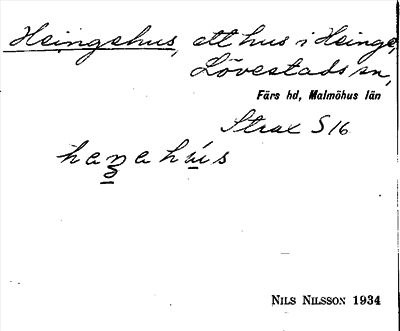 Heingehus, ett hus i Heinge,
Lövestads sn,
Färs hd, Malmöhus län
Strax S 16
haŋahús
NILS NILSSON 1934